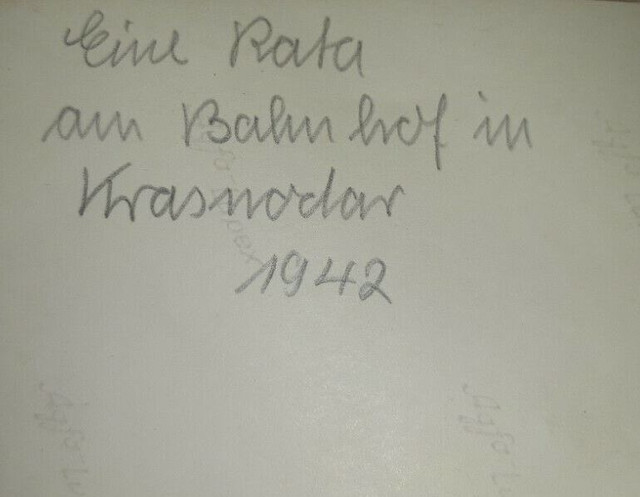 Eine Rata
am Bahnhof in
Krasnodar
1942